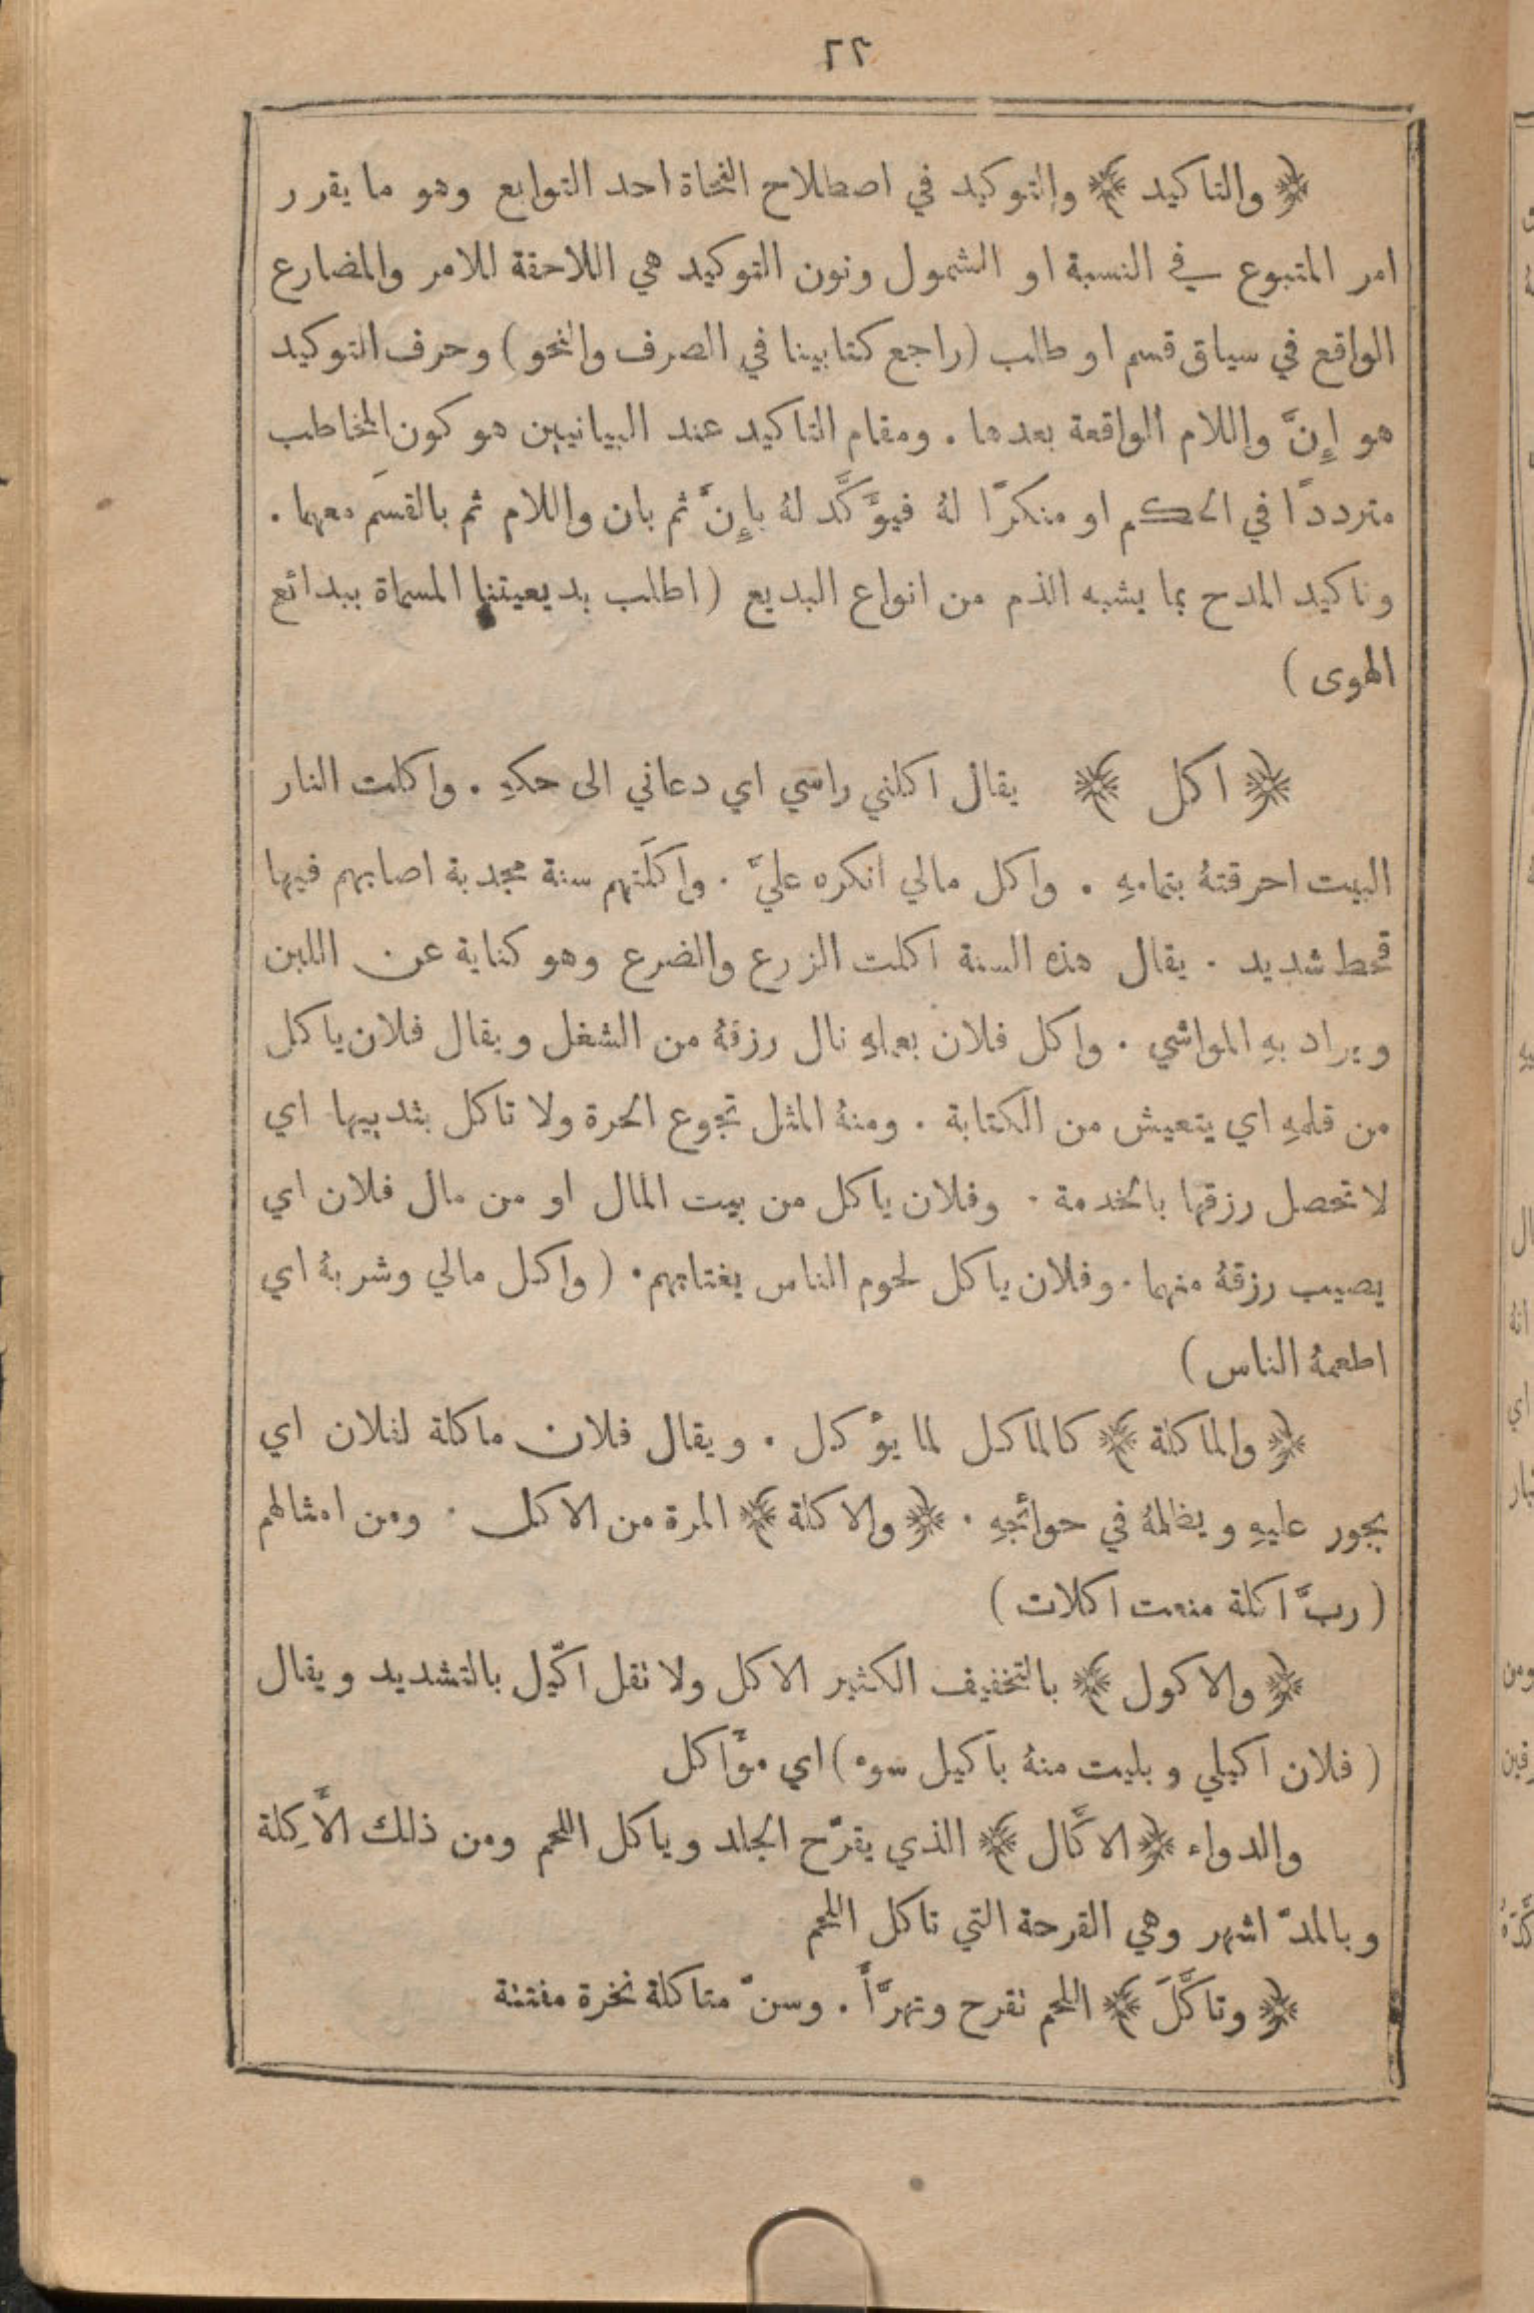 ٢٢
﴿والتاكيد﴾ والتوكيد في اصطلاح النحاة احد التوابع وهو ما يقرر
امر المتبوع في النسبة او الشمول ونون التوكيد هي اللاحقة للامر والمضارع
الواقع في سياق قسم او طلب (راجع كتابينا في الصرف والنحو) وحرف التوكيد
هو إِنَّ واللام الواقعة بعدها . ومقام التاكيد عند البيانيين هو كون المخاطب
مترددًا في الحكم او منكرًا لهُ فيؤَكَّد لهُ بإِنَّ ثم بان واللام ثم بالقسَم معهما .
وتاكيد المدح بما يشبه الذم من انواع البديع (اطلب بديعيتنا المسماة ببدائع
الهوى)
﴿اكل﴾ يقال اكلني راسي اي دعاني الى حكهِ . واكلت النار
البيت احرقتهُ بتمامهِ . واكل مالي انكره عليَّ . واكلَتهم سنة مجدبة اصابهم فيها
قحط شديد . يقال هذه السنة اكلت الزرع والضرع وهو كناية عن اللبن
ويراد بهِ المواشي . واكل فلان بعملهِ نال رزقهُ من الشغل ويقال فلان ياكل
من قلمهِ اي يتعيش من الكتابة . ومنهُ المثل تجوع الحرة ولا تاكل بثدييها اي
لا تحصل رزقها بالخدمة . وفلان ياكل من بيت المال او من مال فلان اي
يصيب رزقهُ منهما . وفلان ياكل لحوم الناس يغتابهم . (واكل مالي وشربهُ اي
اطعمهُ الناس)
﴿والماكلة﴾ كالماكل لما يؤْكل . ويقال فلان ماكلة لفلان اي
يجور عليهِ ويظلمهُ في حوائجهِ . ﴿والاكلة﴾ المرة من الاكل . ومن امثالهم
(ربَّ اكلة منعت اكلات)
﴿والاكول﴾ بالتخفيف الكثير الاكل ولا تقل اكّيل بالتشديد ويقال
(فلان اكيلي وبليت منهُ باكيل سوء) اي مؤَاكل
والدواء ﴿الاكَّال﴾ الذي يقرّح الجلد وياكل اللحم ومن ذلك الأَكِلة
وبالمدّ اشهر وهي القرحة التي تاكل اللحم
﴿وتاكَّلَ﴾ اللحم تقرح وتهرَّأَ . وسنّ متاكلة نخرة منتنة